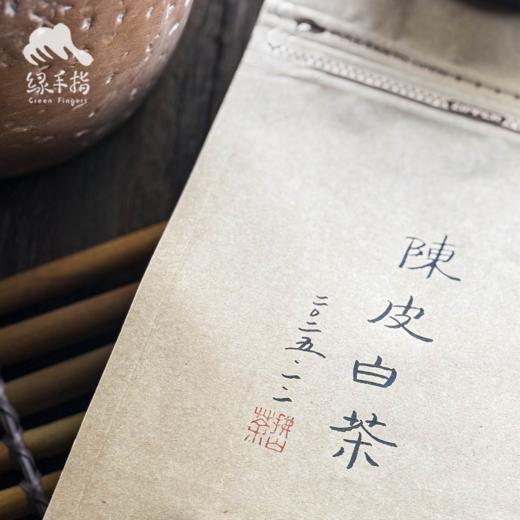 绿手指
Green Fingers
陳皮白茶
二〇二五.一二